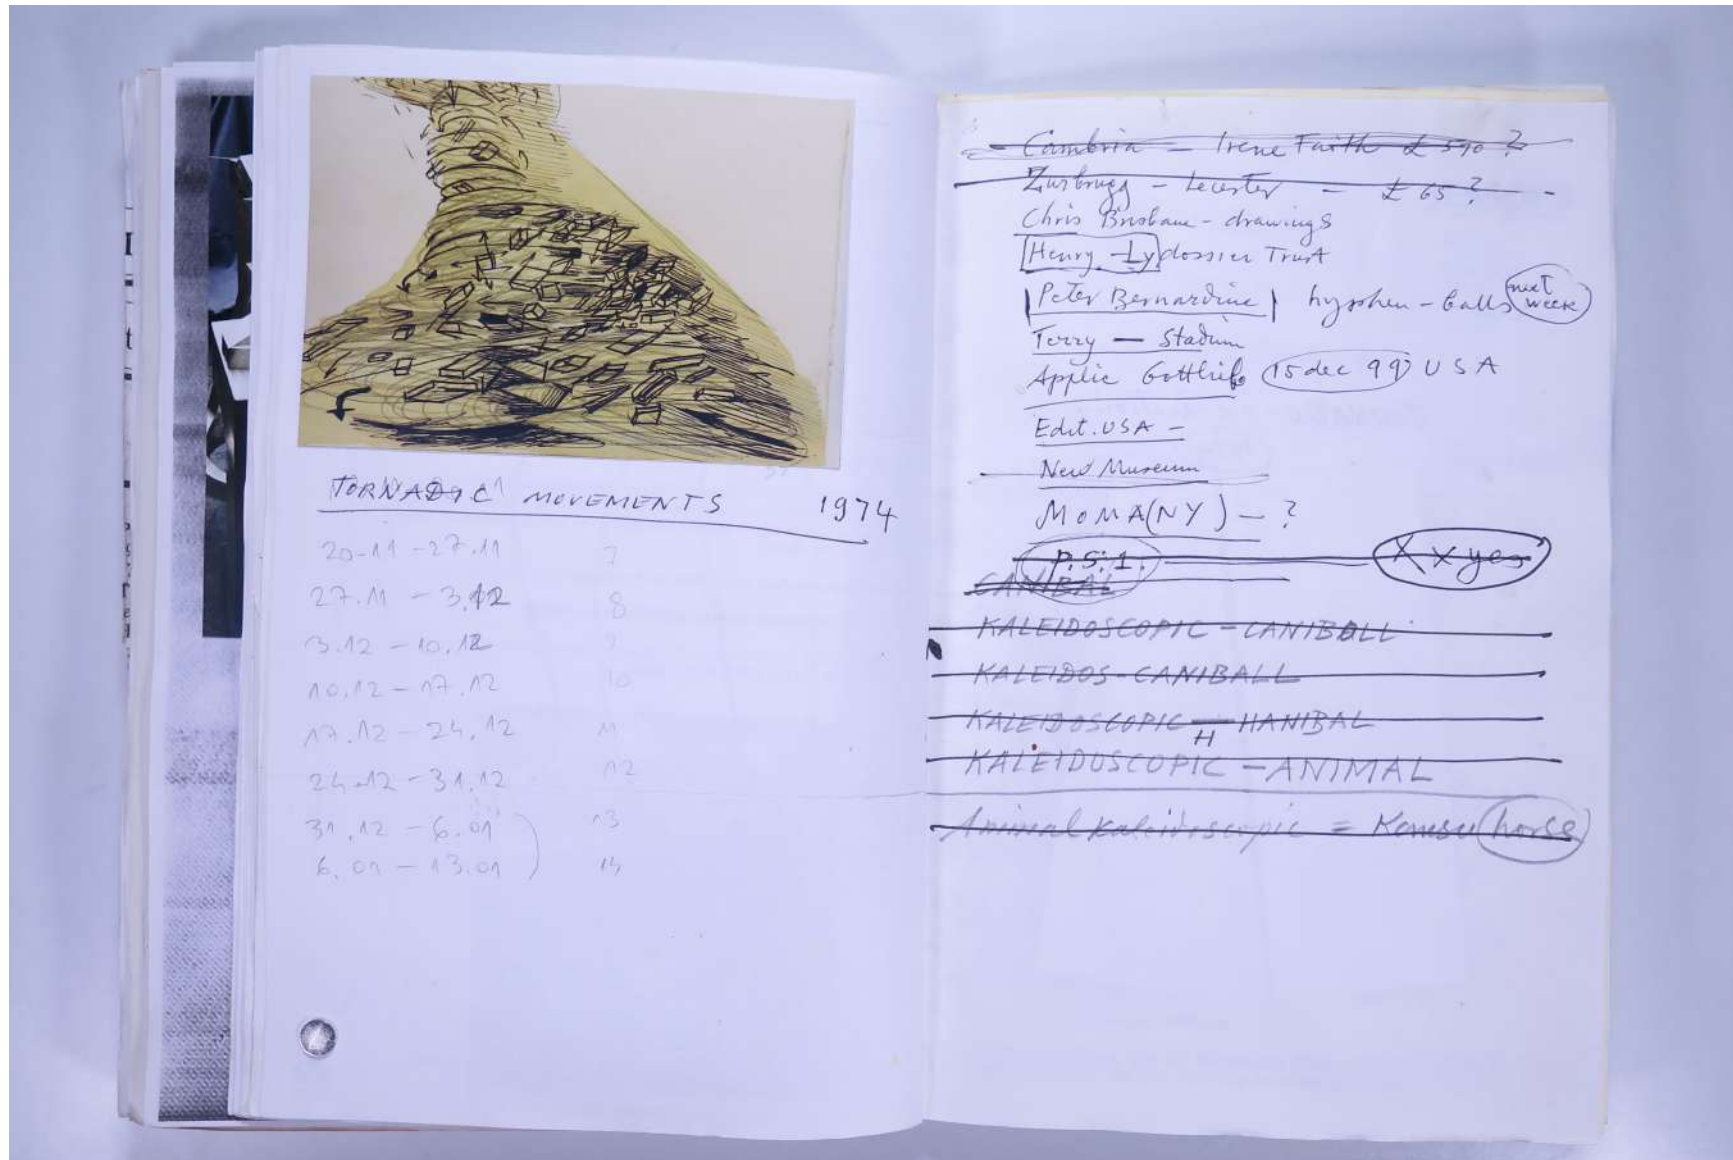 TORNADIC MOVEMENTS 1974
20-11 - 27.11 7
27.11 - 3.12 8
3.12 - 10.12 9
10.12 - 17.12 10
17.12 - 24.12 11
24.12 - 31.12 12
31.12 - 6.01 13
6.01 - 13.01 14
- Cambria - Irene Faith £ 590 ?
Zurbrugg - Leicester - £ 65 ?
Chris Brisbane - drawings
Henry - Ly dossier Trust
Peter Bernardine hyphen - balls next week
Terry - Stadium
Applic Gottlieb 15 dec 99 USA
Edit. USA -
New Museum
MOMA (NY) - ?
P.S.1. X X yes
CANIBAL
KALEIDOSCOPIC - CANIBALL
KALEIDOS - CANIBALL
KALEIDOSCOPIC - HANIBAL
H
KALEIDOSCOPIC - ANIMAL
Animal Kaleidoscopic = horse